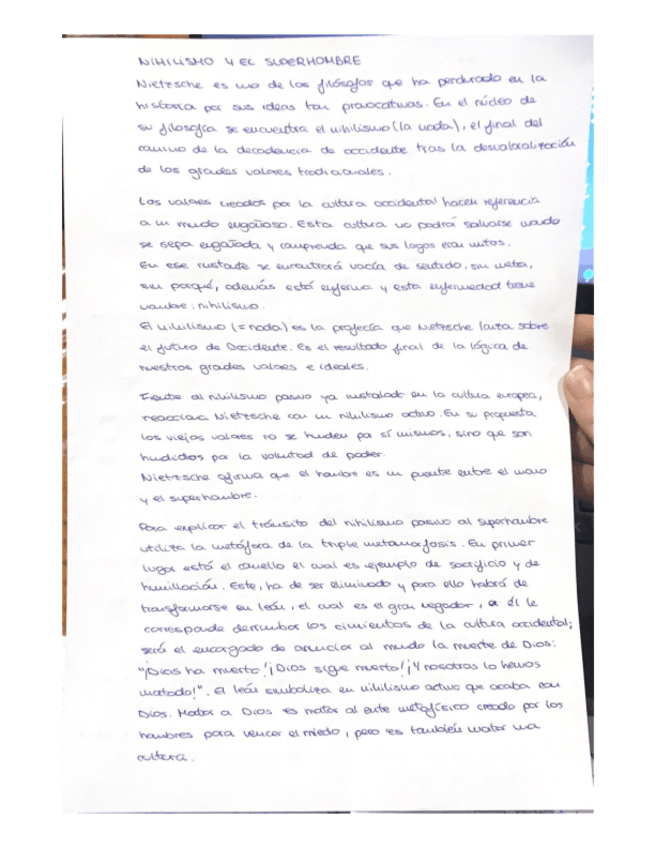 NIHILISMO Y EL SUPERHOMBRE
Nietzsche es uno de los filósofos que ha perdurado en la
historia por sus ideas tan provocativas. En el núcleo de
su filosofía se encuentra el nihilismo (la nada), el final del
camino de la decadencia de occidente tras la desvalorización
de los grandes valores tradicionales.
Los valores creados por la cultura occidental hacen referencia
a un mundo engañoso. Esta cultura no podrá salvarse cuando
se sepa engañada y comprenda que sus logos eran mitos.
En ese instante se encontrará vacía de sentido, sin meta,
sin porqué, además está enferma y esta enfermedad tiene
nombre: nihilismo.
El nihilismo (=nada) es la profecía que Nietzsche lanza sobre
el futuro de Occidente. Es el resultado final de la lógica de
nuestros grandes valores e ideales.
Frente al nihilismo pasivo ya instalado en la cultura europea,
reacciona Nietzsche con un nihilismo activo. En su propuesta
los viejos valores no se hunden por sí mismos, sino que son
hundidos por la voluntad de poder.
Nietzsche afirma que el hombre es un puente entre el mono
y el superhombre.
Para explicar el tránsito del nihilismo pasivo al superhombre
utiliza la metáfora de la triple metamorfosis. En primer
lugar está el camello el cual es ejemplo de sacrificio y de
humillación. Este, ha de ser eliminado y para ello habrá de
transformarse en león, el cual es el gran negador, a él le
corresponde derrumbar los cimientos de la cultura occidental;
será el encargado de anunciar al mundo la muerte de Dios:
"¡Dios ha muerto! ¡Dios sigue muerto! ¡Y nosotros lo hemos
matado!". El león simboliza en nihilismo activo que acaba con
Dios. Matar a Dios es matar al ente metafísico creado por los
hombres para vencer el miedo, pero es también matar una
cultura.